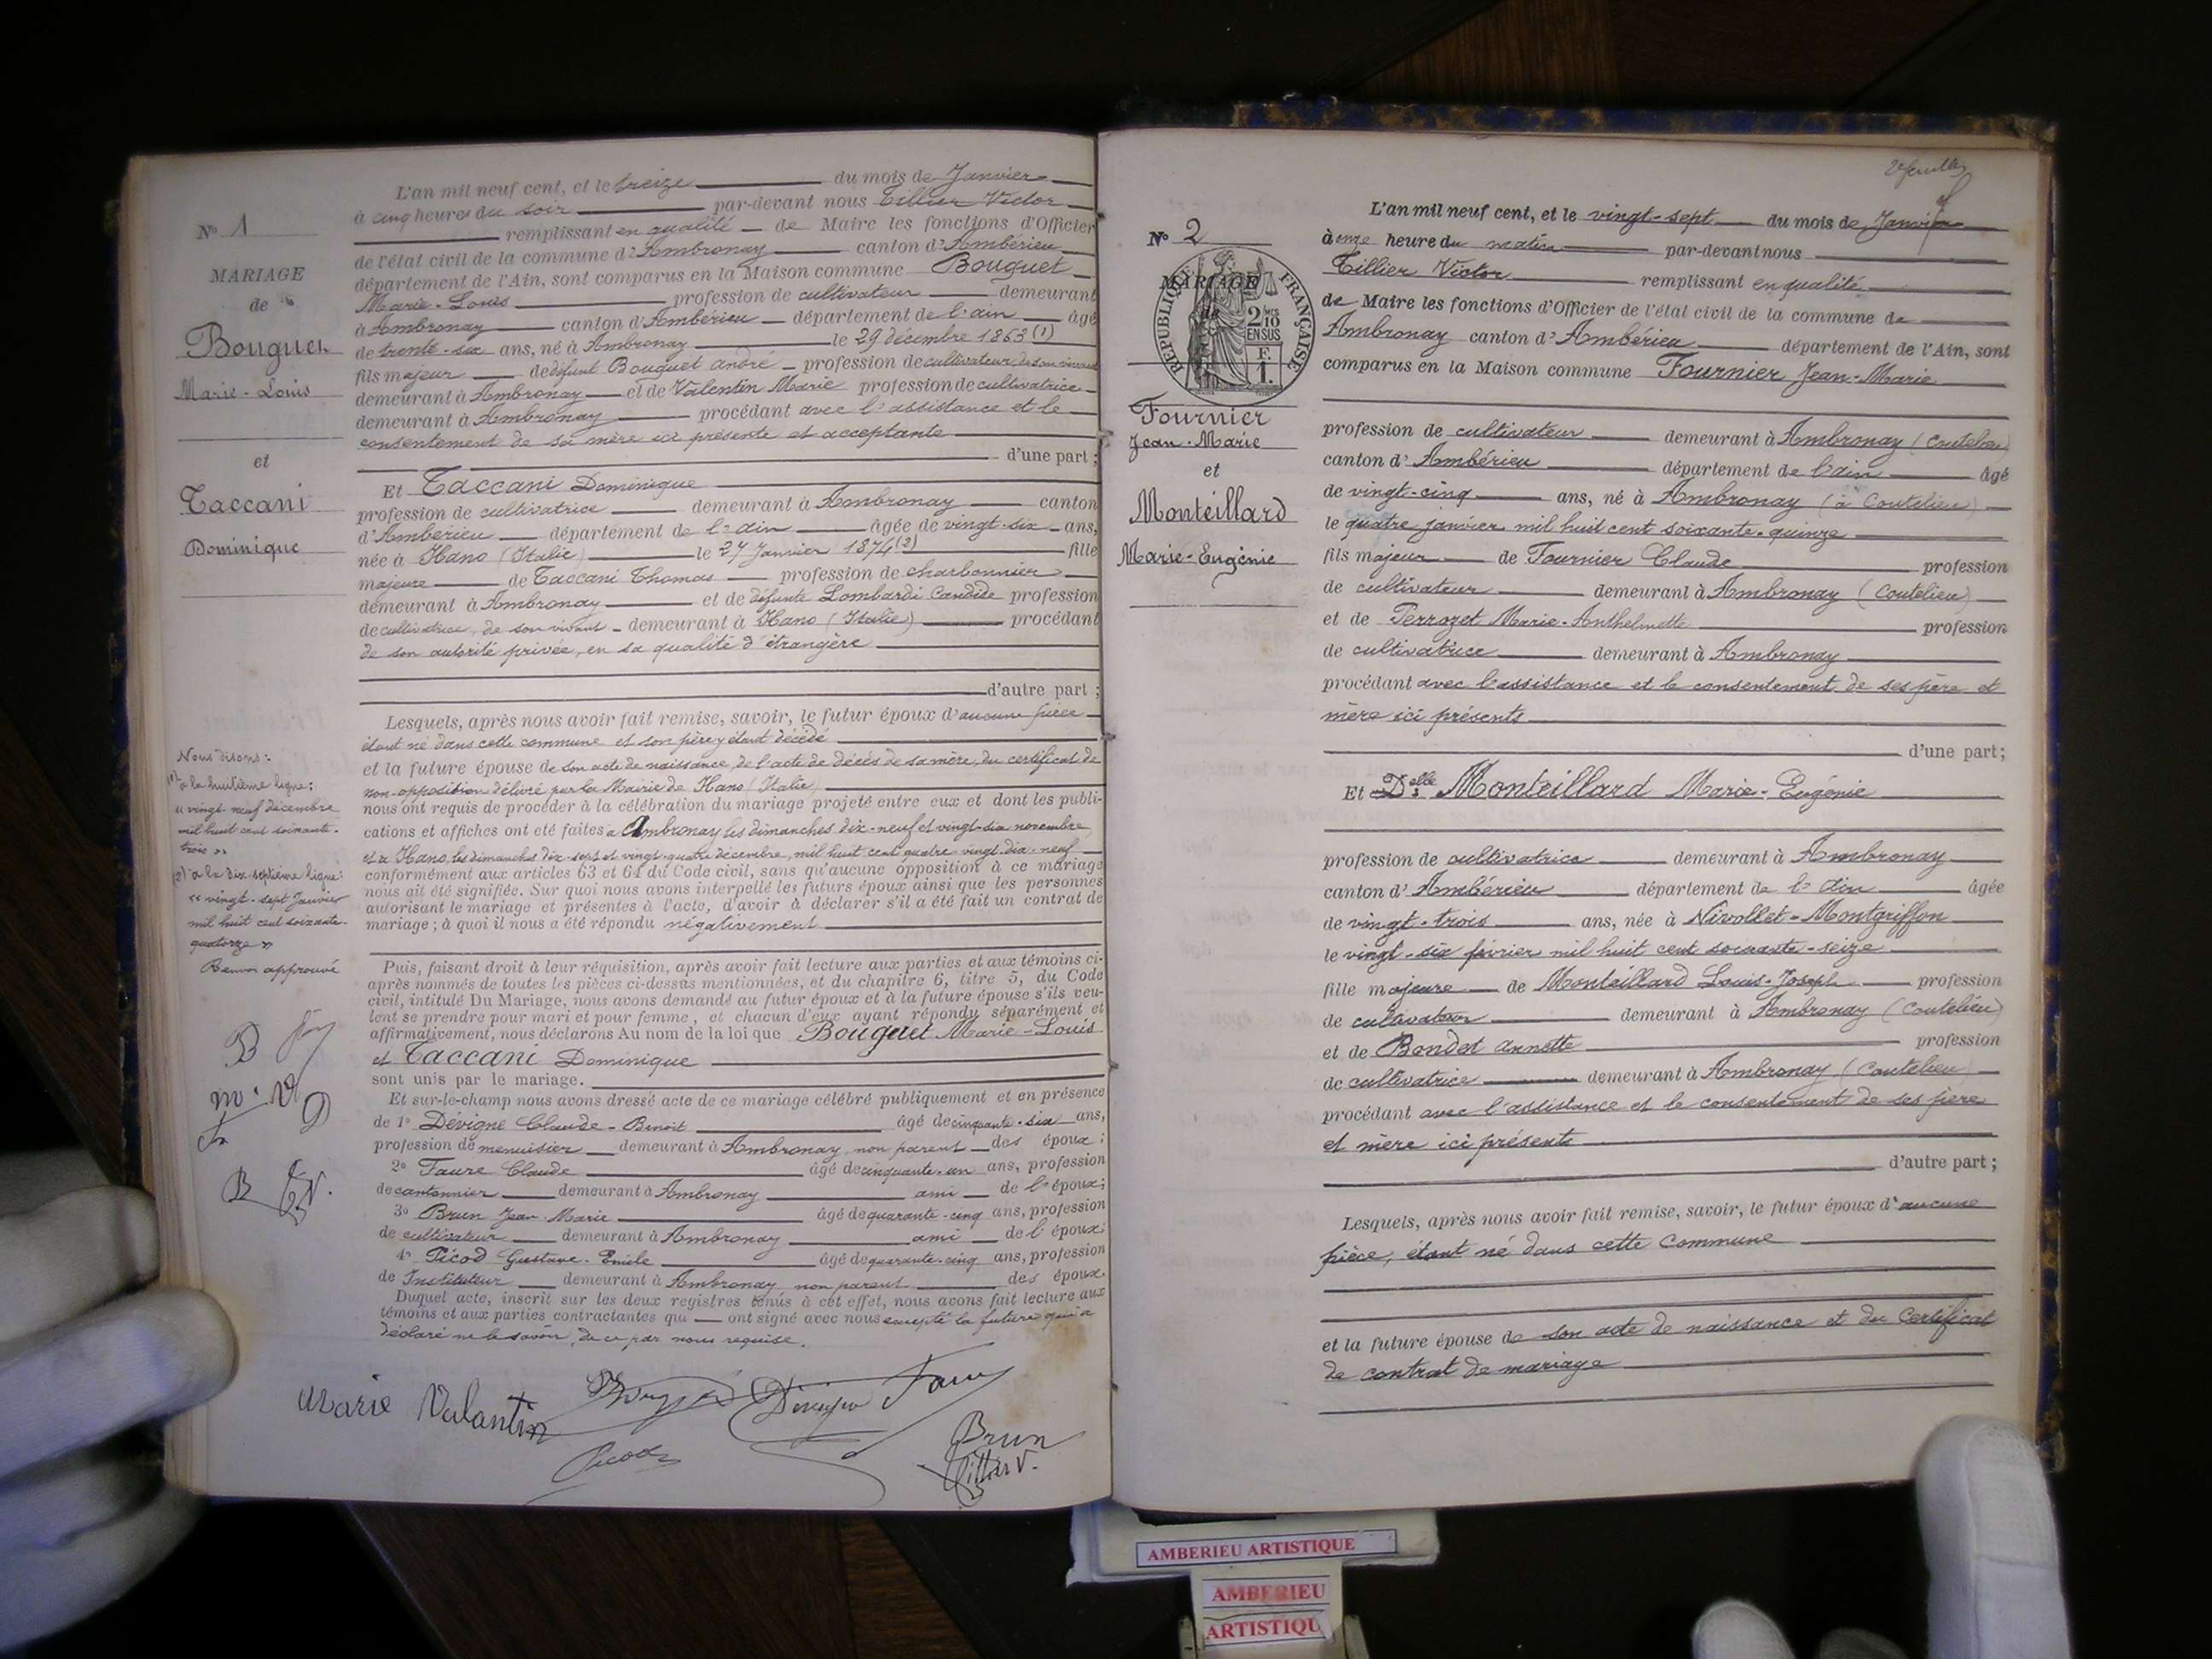 L'an mil neuf cent, et le treize du mois de Janvier
à cinq heures du soir par-devant nous Tillier Victor
remplissant en qualité de Maire les fonctions d'Officier
de l'état civil de la commune d'Ambronay canton d'Ambérieu
département de l'Ain, sont comparus en la Maison commune Bouquet
Marie-Louis profession de cultivateur demeurant
à Ambronay canton d'Ambérieu département de l'ain âgé
de trente-six ans, né à Ambronay le 29 décembre 1863 (1)
fils majeur de défunt Bouquet andré profession de cultivateur, de son vivant
demeurant à Ambronay et de Valentin Marie profession de cultivatrice
demeurant à Ambronay procédant avec l'assistance et le
consentement de sa mère ici présente et acceptante
d'une part ;
Et Taccani Dominique
profession de cultivatrice demeurant à Ambronay canton
d'Ambérieu département de l'ain âgée de vingt-six ans,
née à Hano (Italie) le 27 Janvier 1874 (2) fille
majeure de Taccani Thomas profession de charbonnier
demeurant à Ambronay et de défunte Lombardi Candide profession
de cultivatrice, de son vivant demeurant à Hano (Italie) procédant
de son autorité privée, en sa qualité d'étrangère
d'autre part ;
Lesquels, après nous avoir fait remise, savoir, le futur époux d'aucune pièce
étant né dans cette commune et son père y étant décédé
et la future épouse de son acte de naissance, de l'acte de décès de sa mère, du certificat de
non-opposition délivré par la Mairie de Hano (Italie)
nous ont requis de procéder à la célébration du mariage projeté entre eux et dont les publi-
cations et affiches ont été faites à Ambronay les dimanches dix-neuf et vingt-six novembre
et à Hano, les dimanches dix-sept et vingt-quatre décembre, mil huit cent quatre vingt-dix-neuf
conformément aux articles 63 et 64 du Code civil, sans qu'aucune opposition à ce mariage
nous ait été signifiée. Sur quoi nous avons interpellé les futurs époux ainsi que les personnes
autorisant le mariage et présentes à l'acte, d'avoir à déclarer s'il a été fait un contrat de
mariage ; à quoi il nous a été répondu négativement
Puis, faisant droit à leur réquisition, après avoir fait lecture aux parties et aux témoins ci-
après nommés de toutes les pièces ci-dessus mentionnées, et du chapitre 6, titre 5, du Code
civil, intitulé Du Mariage, nous avons demandé au futur époux et à la future épouse s'ils veu-
lent se prendre pour mari et pour femme, et chacun d'eux ayant répondu séparément et
affirmativement, nous déclarons Au nom de la loi que Bouquet Marie-Louis
et Taccani Dominique
sont unis par le mariage.
Et sur-le-champ nous avons dressé acte de ce mariage célébré publiquement et en présence
de 1° Dévigne Claude-Benoit âgé de cinquante-six ans,
profession de menuisier demeurant à Ambronay, non parent des époux ;
2° Faure Claude âgé de cinquante-un ans, profession
de cantonnier demeurant à Ambronay ami de l'époux ;
3° Brun Jean-Marie âgé de quarante-cinq ans, profession
de cultivateur demeurant à Ambronay ami de l'époux ;
4° Picod Gustave-Emile âgé de quarante-cinq ans, profession
de Instituteur demeurant à Ambronay non parent des époux.
Duquel acte, inscrit sur les deux registres tenus à cet effet, nous avons fait lecture aux
témoins et aux parties contractantes qui ont signé avec nous excepté la future qui a
déclaré ne le savoir, de ce par nous requise.
Marie Valantin
Dévigne Faure
Picod
Brun
Tillier V.
N° 1
MARIAGE
de
Bouquet
Marie-Louis
et
Taccani
Dominique
Nous disons :
(1) à la huitième ligne :
« vingt neuf décembre
mil huit cent soixante-
trois »
(2) à la dix-septième ligne :
« vingt-sept Janvier
mil huit cent soixante-
quatorze »
Renvoi approuvé
2e feuillet
N° 2
MARIAGE
de
REPUBLIQUE FRANÇAISE
2/10 EN SUS
F. 1.
Fournier
Jean-Marie
et
Monteillard
Marie-Eugénie
L'an mil neuf cent, et le vingt-sept du mois de Janvier
à onze heure du matin par-devant nous
Tillier Victor remplissant en qualité
de Maire les fonctions d'Officier de l'état civil de la commune de
Ambronay canton d'Ambérieu département de l'Ain, sont
comparus en la Maison commune Fournier Jean-Marie
profession de cultivateur demeurant à Ambronay (Coutelieu)
canton d'Ambérieu département de l'ain âgé
de vingt-cinq ans, né à Ambronay (à Coutelieu)
le quatre janvier mil huit cent soixante-quinze
fils majeur de Fournier Claude profession
de cultivateur demeurant à Ambronay (Coutelieu)
et de Perrozet Marie-Anthelmette profession
de cultivatrice demeurant à Ambronay
procédant avec l'assistance et le consentement de ses père et
mère ici présents
d'une part ;
Et Delle Monteillard Marie-Eugénie
profession de cultivatrice demeurant à Ambronay
canton d'Ambérieu département de l'ain âgée
de vingt-trois ans, née à Nivollet-Montgriffon
le vingt-six février mil huit cent soixante-seize
fille majeure de Monteillard Louis-Joseph profession
de cultivateur demeurant à Ambronay (Coutelieu)
et de Bondet annette profession
de cultivatrice demeurant à Ambronay (Coutelieu)
procédant avec l'assistance et le consentement de ses père
et mère ici présents
d'autre part ;
Lesquels, après nous avoir fait remise, savoir, le futur époux d'aucune
pièce, étant né dans cette commune
et la future épouse de son acte de naissance et du Certificat
de contrat de mariage
AMBERIEU ARTISTIQUE
AMBERIEU
ARTISTIQU